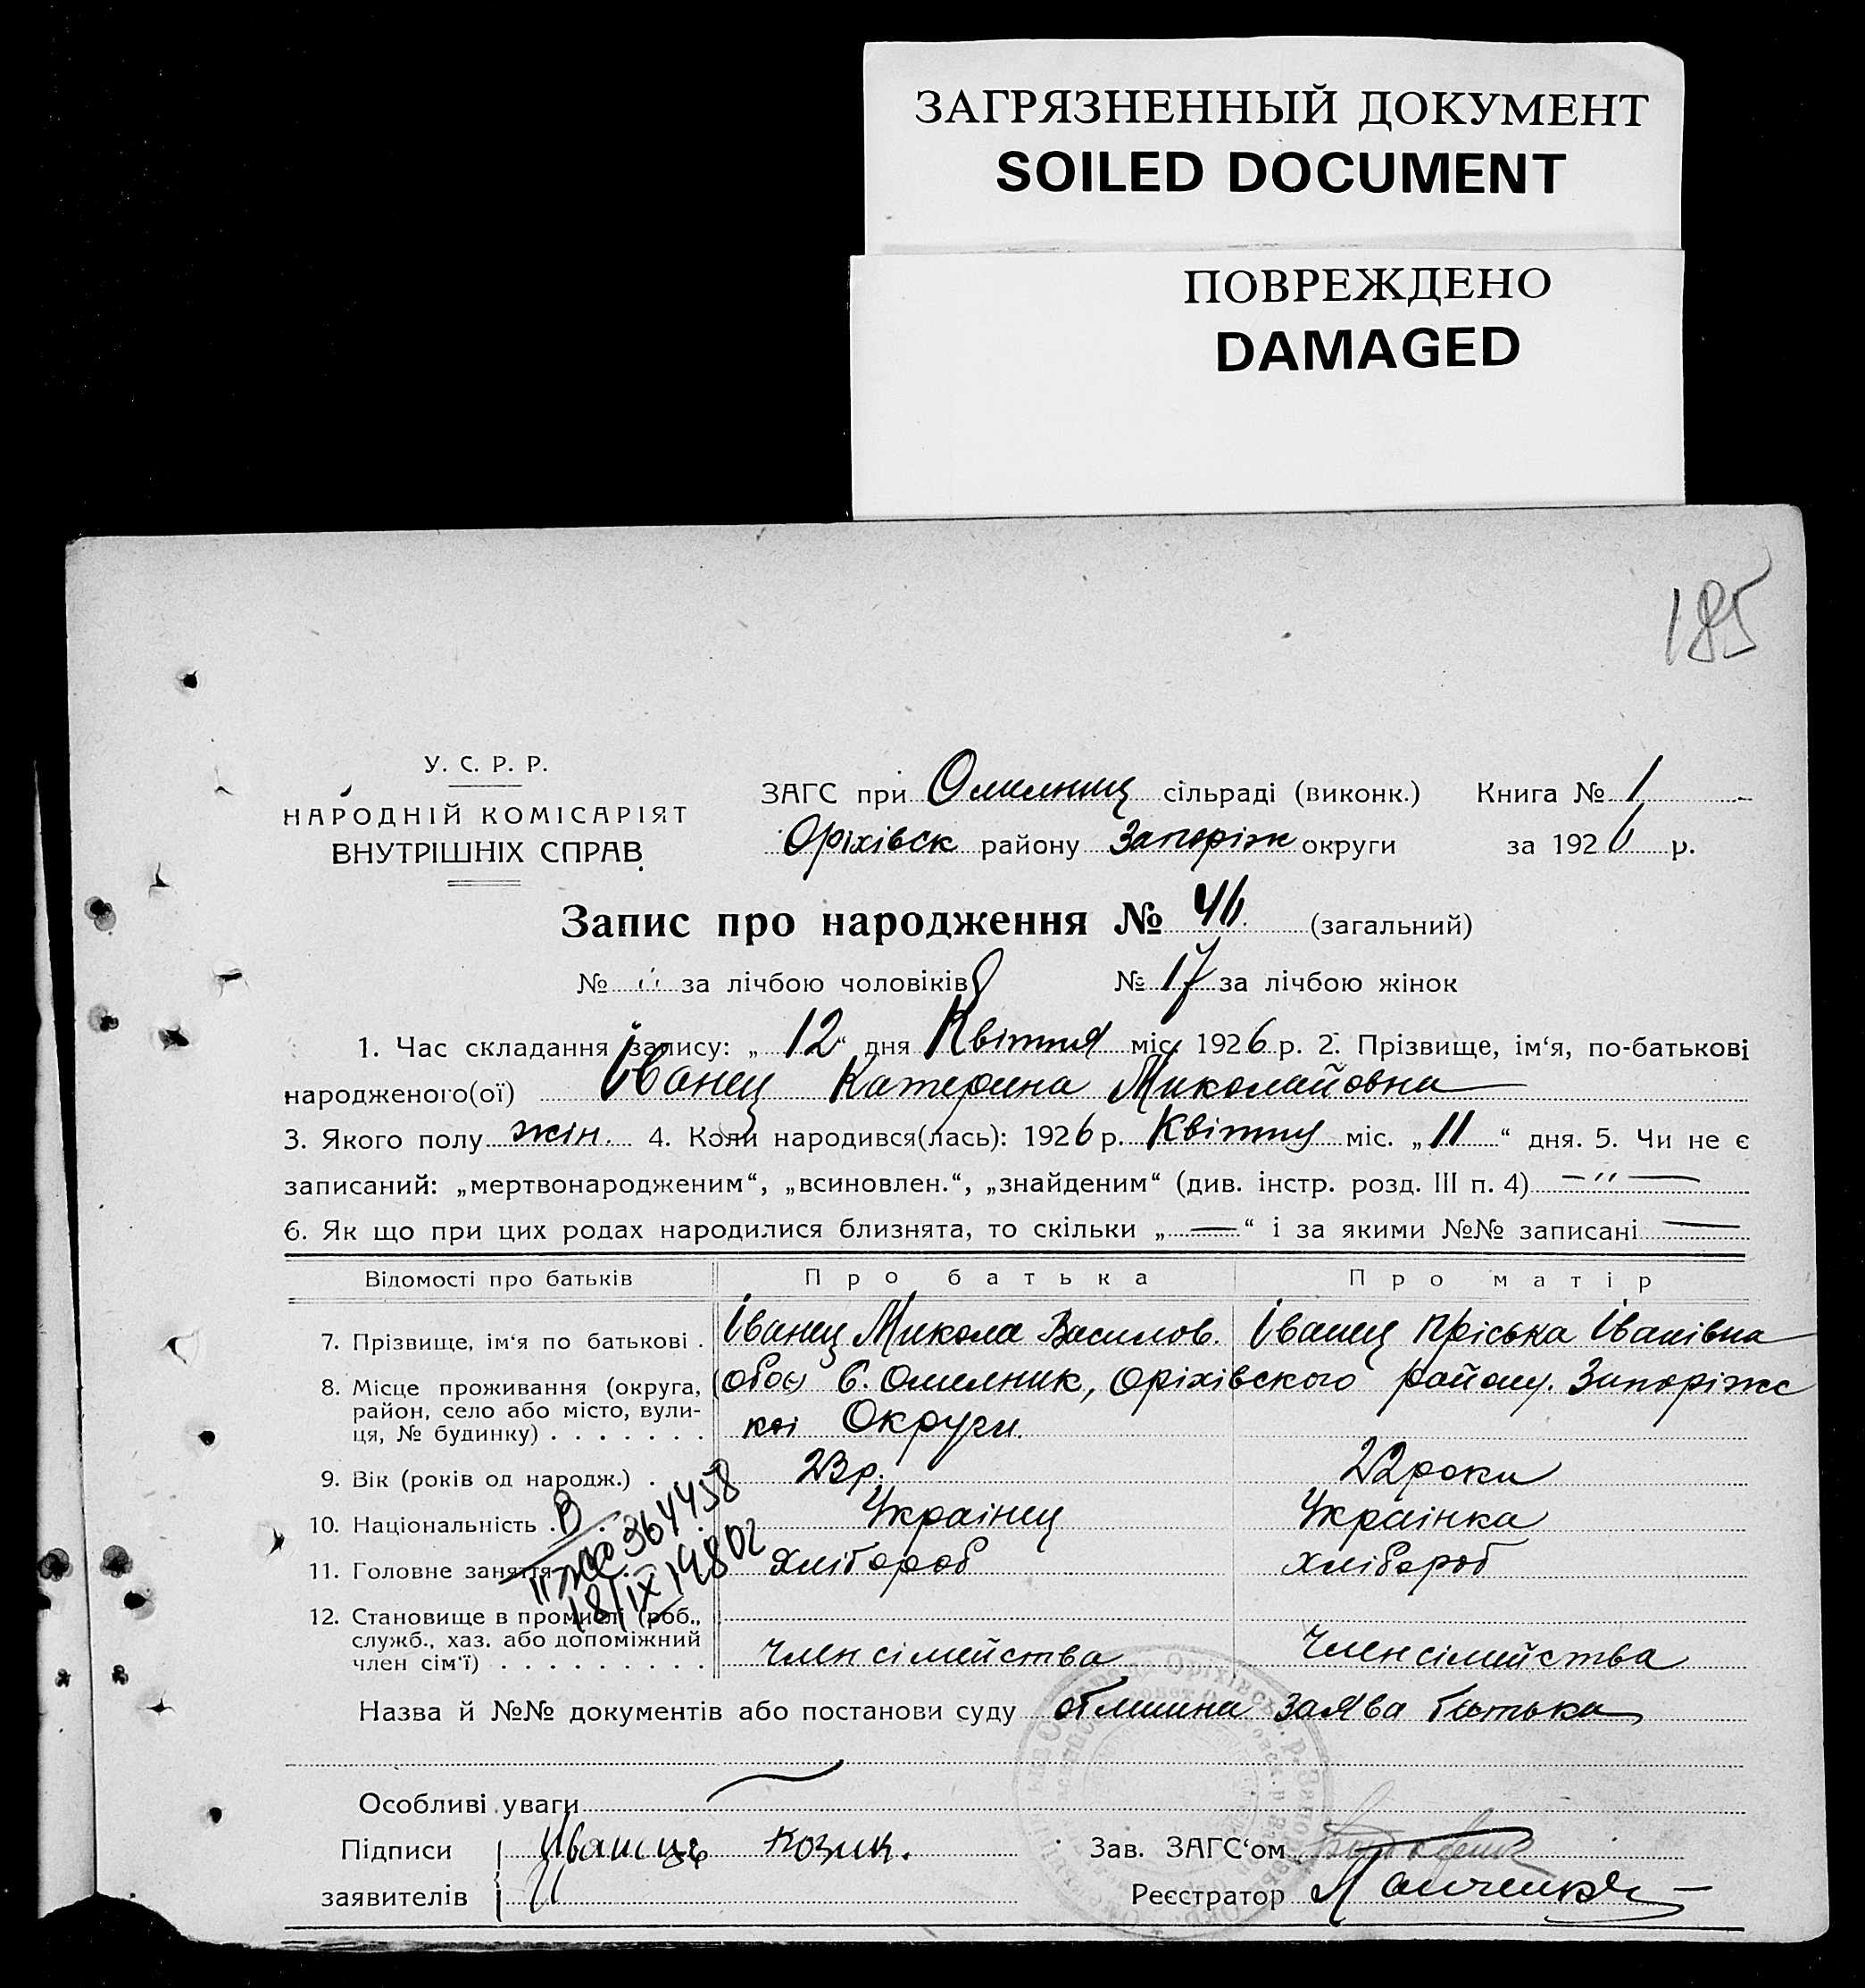 ЗАГРЯЗНЕННЫЙ ДОКУМЕНТ
SOILED DOCUMENT
ПОВРЕЖДЕНО
DAMAGED
185
У. С. Р. Р.
НАРОДНІЙ КОМІСАРІЯТ
ВНУТРІШНІХ СПРАВ
ЗАГС при Омелниц сільраді (виконк.) Книга № 1
Оріхівск району Запоріж округи за 1926 р.
Запис про народження № 46 (загальний)
№ " за лічбою чоловіків № 17 за лічбою жінок
1. Час складання запису: „12“ дня Квітня міс. 1926 р. 2. Прізвище, ім'я, по-батькові
народженого(ої) Іванец Катерина Миколайовна
3. Якого полу жін. 4. Коли народився(лась): 1926 р. Квітня міс. „11“ дня. 5. Чи не є
записаний: „мертвонародженим“, „всиновлен.“, „знайденим“ (див. інстр. розд. III п. 4) —"—
6. Як що при цих родах народилися близнята, то скільки „—“ і за якими №№ записані —
Відомості про батьків Про батька Про матір
7. Прізвище, ім'я по батькові . Іванец Микола Василов. Іванец Пріська Іванівна
8. Місце проживання (округа, район, село або місто, вулиця, № будинку) . . . . . . . обоє С. Омелник, Оріхівского району. Запоріжс
кої Округи.
9. Вік (років од народж.) . 23 р. 22 роки
10. Національність . Украінец Украінка
11. Головне заняття Хлібороб Хлібороб
В
364458
18/IX 1980г
12. Становище в промислі (роб.,
служб., хаз. або допоміжний
член сім'ї) . . . . . . . . . Член сімейства Член сімейства
Назва й №№ документів або постанови суду заява батька
Особливі уваги
Підписи Козик.
Зав. ЗАГС'ом
заявителів
Реєстратор